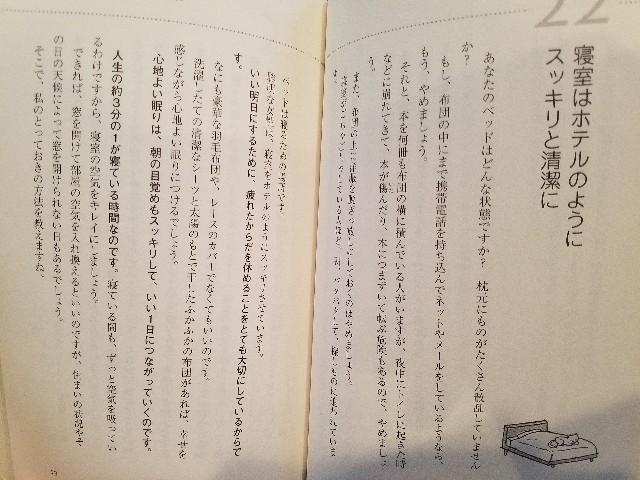 22
寝室はホテルのように
スッキリと清潔に
あなたのベッドはどんな状態ですか？ 枕元にものがたくさん散乱していません
か？
もし、布団の中にまで携帯電話を持ち込んでネットやメールをしているようなら、
もう、やめましょう。
それと、本を何冊も布団の横に積んでいる人がいますが、夜中にトイレに起きた時
などに崩れてきて、本が傷んだり、本につまずいて転ぶ危険もあるので、やめましょ
う。
また、布団の上に洋服を脱ぎっ放しにしておくのはやめましょう。
ベッドは寝るための場所です。
寝室をホテルのようにスッキリさせています。
いい明日にするために、疲れたからだを休めることをとても大切にしているからで
す。
なにも豪華な羽毛布団や、レースのカバーでなくてもいいのです。
洗濯したての清潔なシーツと太陽のもとで干したふかふかの布団があれば、幸せを
感じながら心地よい眠りにつけるでしょう。
心地よい眠りは、朝の目覚めもスッキリして、いい1日につながっていくのです。
人生の約3分の1が寝ている時間なのです。寝ている間も、ずっと空気を吸ってい
るわけですから、寝室の空気をキレイにしましょう。
できれば、窓を開けて部屋の空気を入れ換えるといいのですが、住まいの状況やそ
の日の天候によって窓を開けられない日もあるでしょう。
そこで、私のとっておきの方法を教えますね。